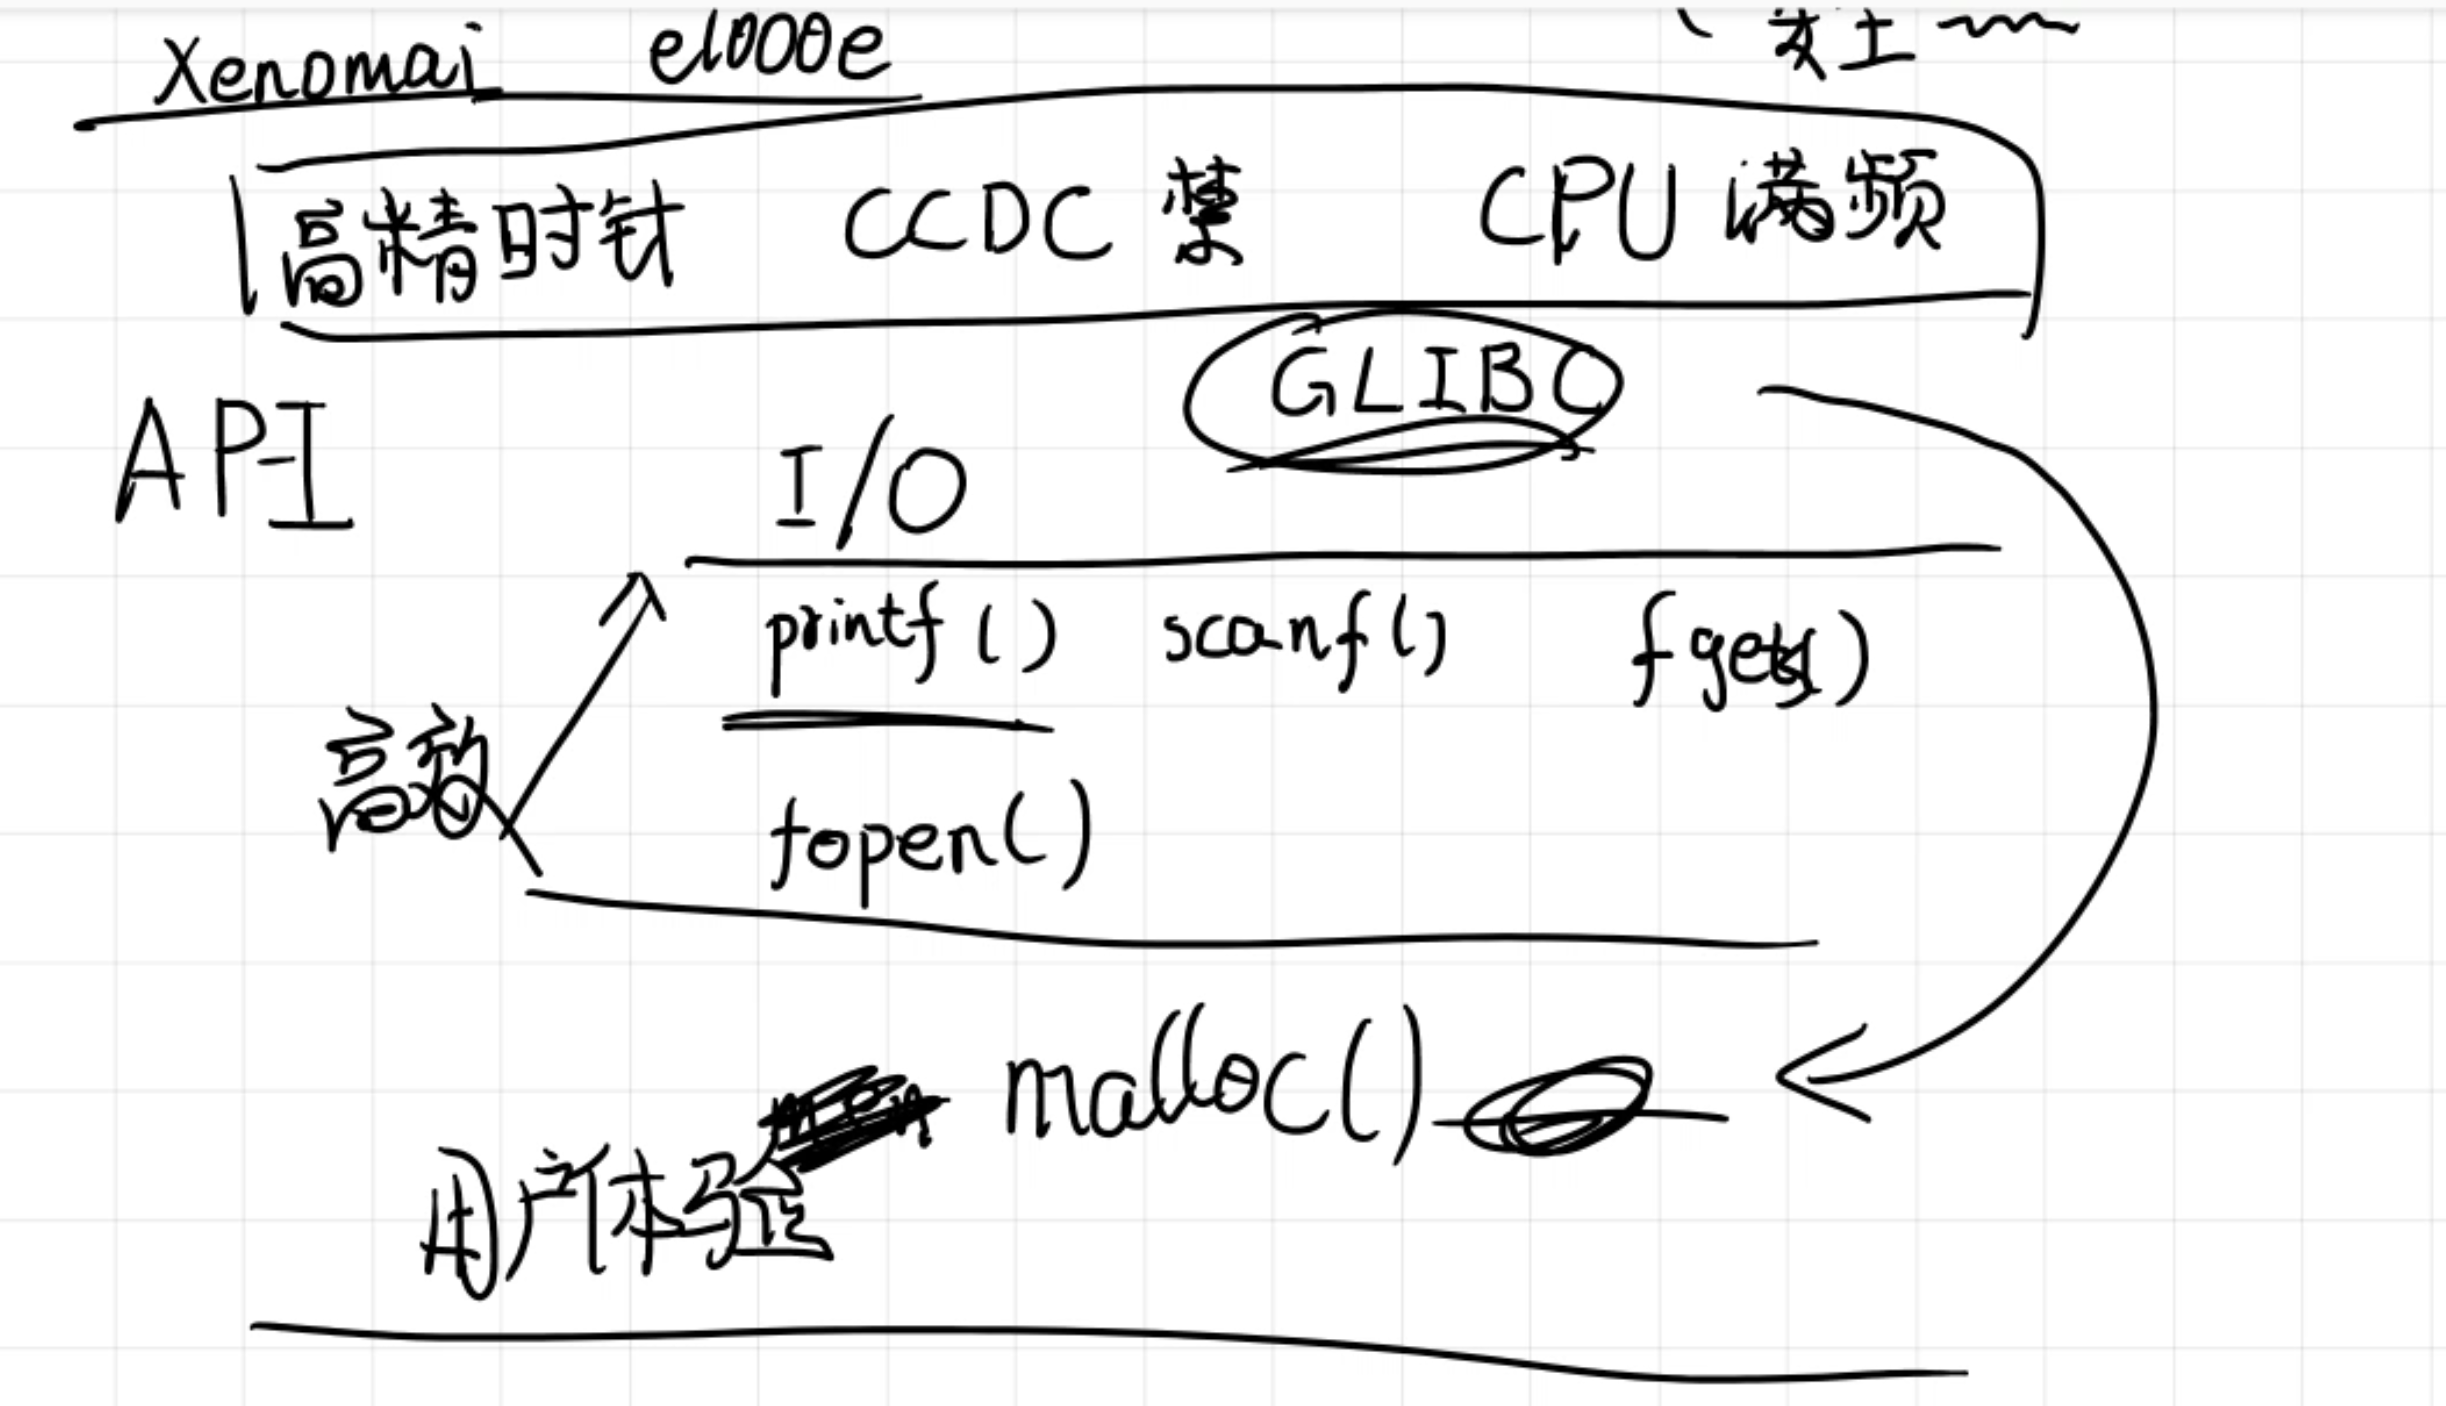 Xenomai e1000e
高精时针 CCDC 禁 CPU 满频
GLIBC
API I/O
printf() scanf() fgets()
高效
fopen()
malloc()
用户体验